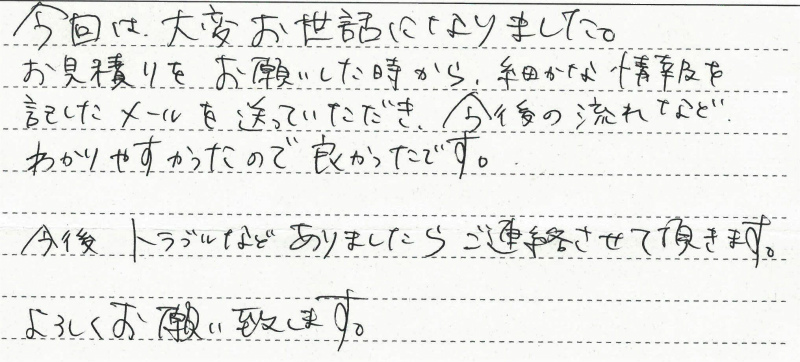 今回は、大変お世話になりました。
お見積りをお願いした時から、細かな情報を
記したメールを送っていただき、今後の流れなど
わかりやすかったので良かったです。
今後トラブルなどありましたらご連絡させて頂きます。
よろしくお願い致します。